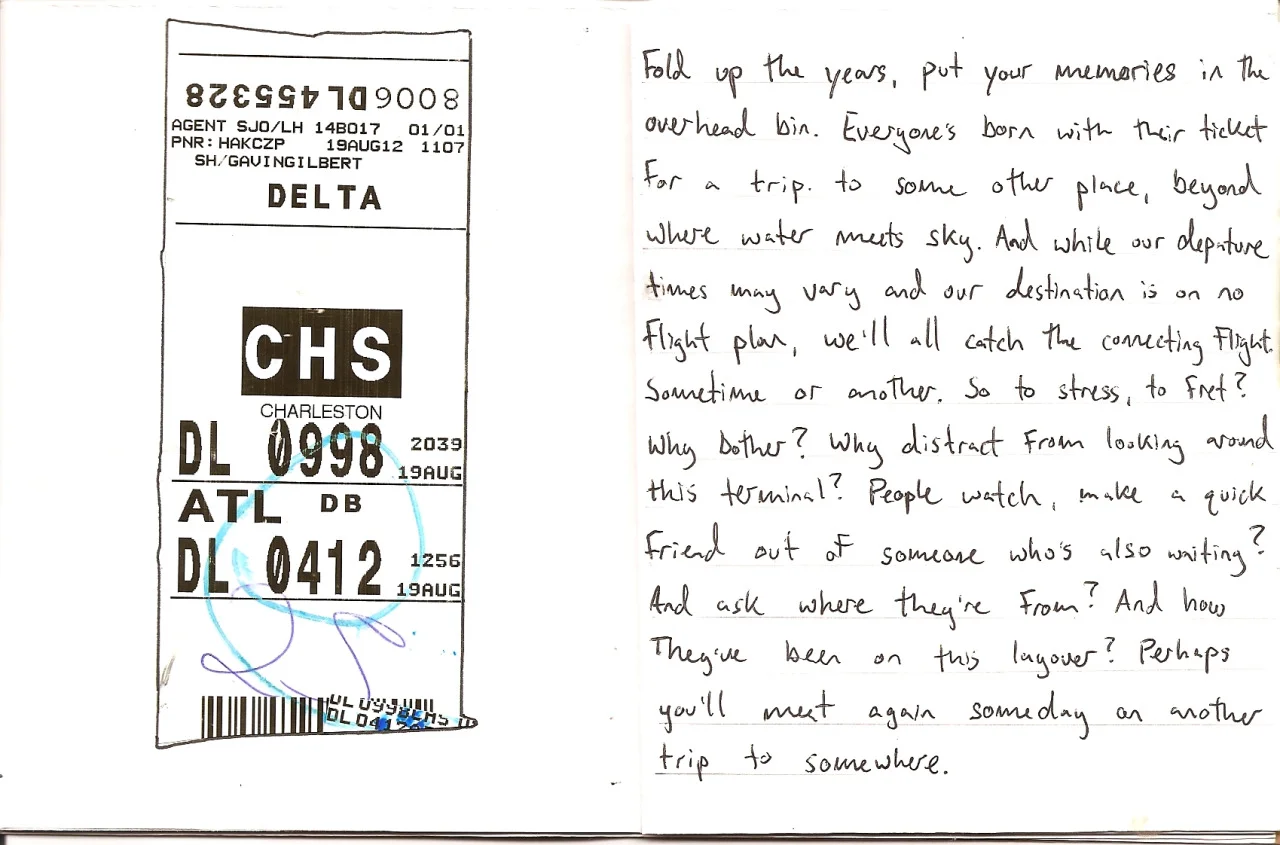 8006 DL 455328
AGENT SJO/LH 14B017 01/01
PNR: HAKCZP 19AUG12 1107
SH/GAVINGILBERT
DELTA
CHS
CHARLESTON
DL 0998 2039
19AUG
ATL DB
DL 0412 1256
19AUG
DL 0998
DL 0412
Fold up the years, put your memories in the
overhead bin. Everyone's born with their ticket
for a trip. to some other place, beyond
where water meets sky. And while our depature
times may vary and our destination is on no
flight plan, we'll all catch the connecting flight.
Sometime or another. So to stress, to fret?
Why bother? Why distract from looking around
this terminal? People watch, make a quick
friend out of someone who's also waiting?
And ask where they're from? And how
They've been on this layover? Perhaps
you'll meet again someday on another
trip to somewhere.